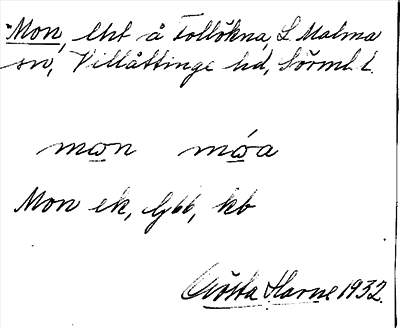 Mon, lht å Tollökna, L Malma
sn, Villåttinge hd, Sörml. l.
mon móa
Mon ek, Gbb, kb
Gösta Harne 1932.